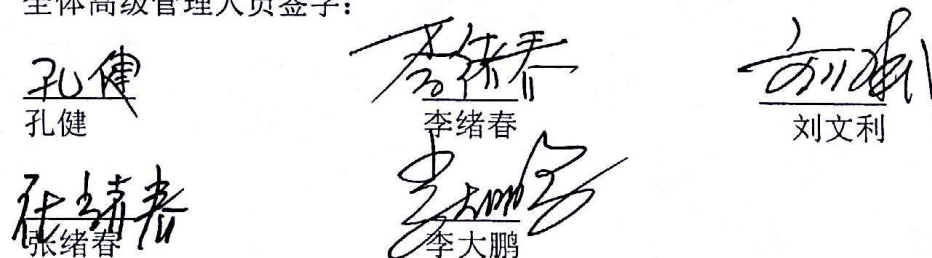 全体高级管理人员签字：
孔健
孔健 李绪春 刘文利
张绪春 李大鹏